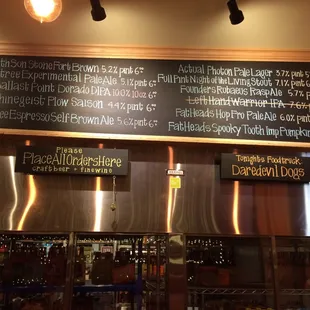 Son Stone Fort Brown 5.2% pint 6
tree Experimental Pale Ale 5.1% pint
Ballast Point Dorado DIPA 10.0% 10oz
hinegeist Plow Saison 4.4% pint 6
ee Espresso Self Brown Ale 5.6% pint 6
Actual Photon Pale Lager 3.7% pint
Full Pint Night of the Living Stout 7.1% pint
Founders Rubaeus Rasp Ale 5.7%
Left Hand Warrior IPA 7.6%
Fat Heads Hop Pro Pale 6.0% pint
Fat Heads Spooky Tooth Imp Pumpkin
Please
Place All Orders Here
craft beer + fine wine
Tonight's Foodtruck
Daredevil Dogs